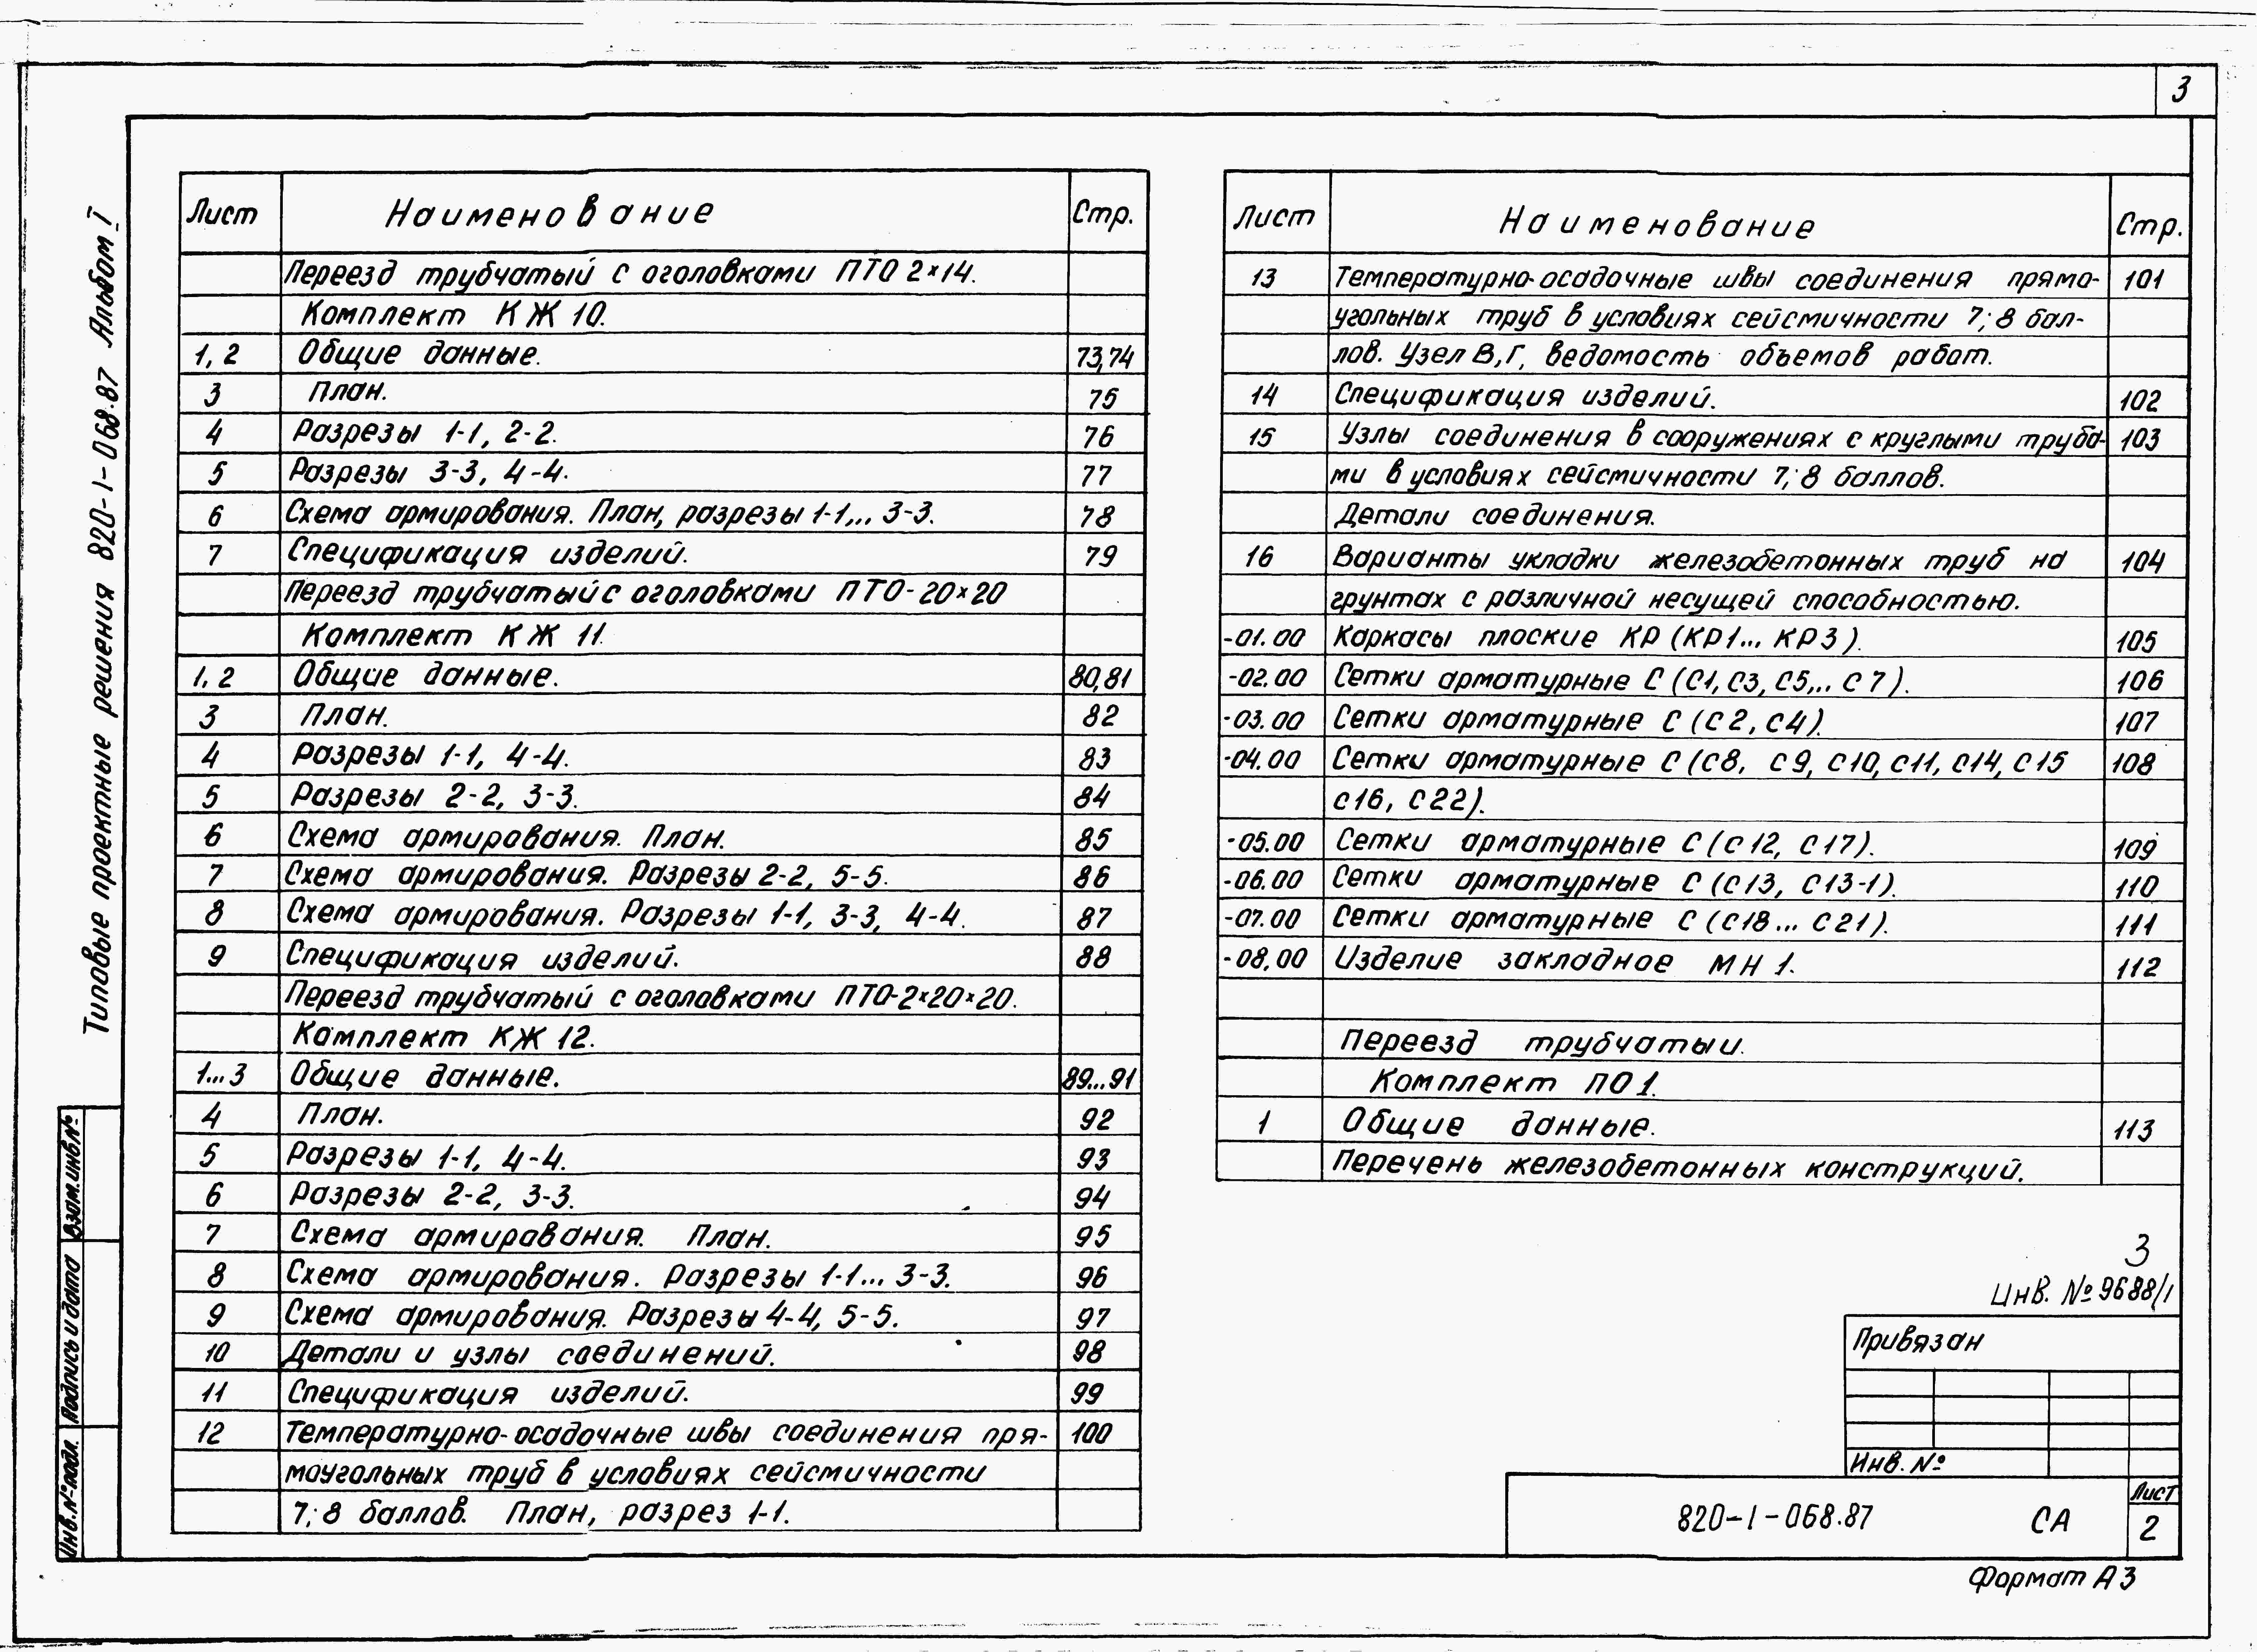 3
Типовые проектные решения 820-1-068.87 Альбом I
Лист Наименование Стр.
Переезд трубчатый с оголовками ПТО 2×14.
Комплект КЖ 10.
1, 2 Общие данные. 73,74
3 План. 75
4 Разрезы 1-1, 2-2. 76
5 Разрезы 3-3, 4-4. 77
6 Схема армирования. План, разрезы 1-1,.. 3-3. 78
7 Спецификация изделий. 79
Переезд трубчатый с оголовками ПТО-20×20
Комплект КЖ 11.
1, 2 Общие данные. 80,81
3 План. 82
4 Разрезы 1-1, 4-4. 83
5 Разрезы 2-2, 3-3. 84
6 Схема армирования. План. 85
7 Схема армирования. Разрезы 2-2, 5-5. 86
8 Схема армирования. Разрезы 1-1, 3-3, 4-4. 87
9 Спецификация изделий. 88
Переезд трубчатый с оголовками ПТО-2×20×20.
Комплект КЖ 12.
1...3 Общие данные. 89...91
4 План. 92
5 Разрезы 1-1, 4-4. 93
6 Разрезы 2-2, 3-3. 94
7 Схема армирования. План. 95
8 Схема армирования. Разрезы 1-1... 3-3. 96
9 Схема армирования. Разрезы 4-4, 5-5. 97
10 Детали и узлы соединений. 98
11 Спецификация изделий. 99
12 Температурно-осадочные швы соединения пря- 100
моугольных труб в условиях сейсмичности
7; 8 баллов. План, разрез 1-1.
Лист Наименование Стр.
13 Температурно-осадочные швы соединения прямо- 101
угольных труб в условиях сейсмичности 7; 8 бал-
лов. Узел В,Г, ведомость объемов работ.
14 Спецификация изделий. 102
15 Узлы соединения в сооружениях с круглыми труба- 103
ми в условиях сейсмичности 7; 8 баллов.
Детали соединения.
16 Варианты укладки железобетонных труб на 104
грунтах с различной несущей способностью.
-01.00 Каркасы плоские КР (КР1... КР3). 105
-02.00 Сетки арматурные С (С1, С3, С5,.. С7). 106
-03.00 Сетки арматурные С (С2, С4). 107
-04.00 Сетки арматурные С (С8, С9, С10, С11, С14, С15 108
С16, С22).
-05.00 Сетки арматурные С (С12, С17). 109
-06.00 Сетки арматурные С (С13, С13-1). 110
-07.00 Сетки арматурные С (С18... С21). 111
-08.00 Изделие закладное МН 1. 112
Переезд трубчатый.
Комплект ПО1.
1 Общие данные. 113
Перечень железобетонных конструкций.
3
Инв. № 9688/1
Привязан
Инв. №
820-1-068.87 СА
Лист
2
Формат А3
Взам.инв№
Подпись и дата
Инв.№ подл.